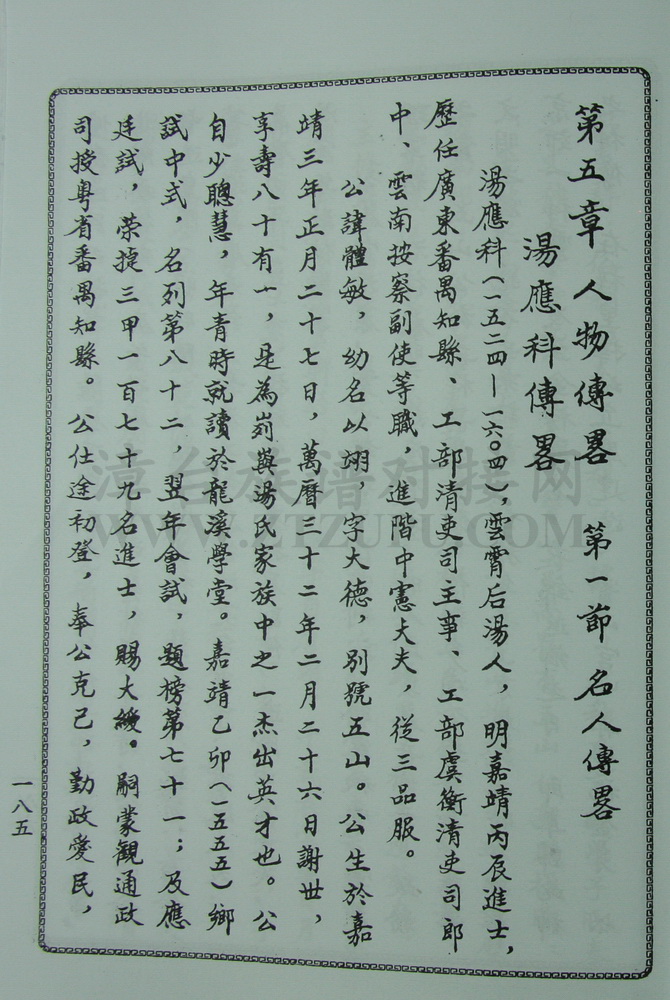 第五章 人物傳畧 第一節 名人傳畧
湯應科傳畧
湯應科(一五二四—一六〇四),雲霄后湯人,明嘉靖丙辰進士,
歷任廣東番禺知縣、工部清吏司主事、工部虞衡清吏司郎
中、雲南按察副使等職,進階中憲大夫,從三品服。
公諱體敏,幼名以翊,字大德,別號五山。公生於嘉
靖三年正月二十七日,萬曆三十二年二月二十六日謝世,
享壽八十有一,是為峛與湯氏家族中之一杰出英才也。公
自少聰慧,年青時就讀於龍溪學堂。嘉靖乙卯(一五五五)鄉
試中式,名列第八十二,翌年會試,題榜第七十一;及應
廷試,榮捷三甲一百七十九名進士,賜大緩。嗣蒙觀通政
司授粵省番禺知縣。公仕途初登,奉公克己,勤政愛民,
一八五
漳台族谱对接网
WWW.ZTZUPU.COM